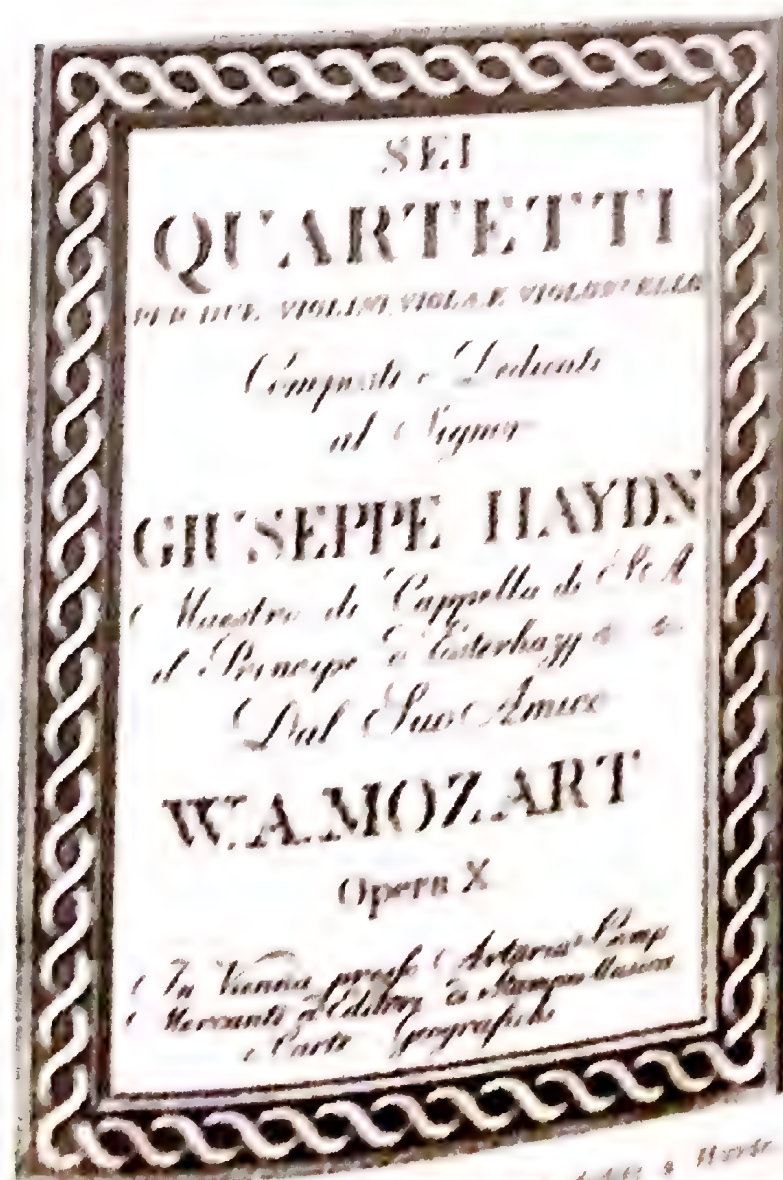 SEI
QUARTETTI
PER DUE VIOLINI VIOLA E VIOLONCELLO
Composti e Dedicati
al Signor
GIUSEPPE HAYDN
Maestro di Cappella di S. A.
il Principe d'Esterhazy &c &c
Dal Suo Amico
W.A.MOZART
Opera X
In Vienna presso Artaria Comp
Mercanti ed Editori di Stampe Musica
e Carte Geografiche
Haydn